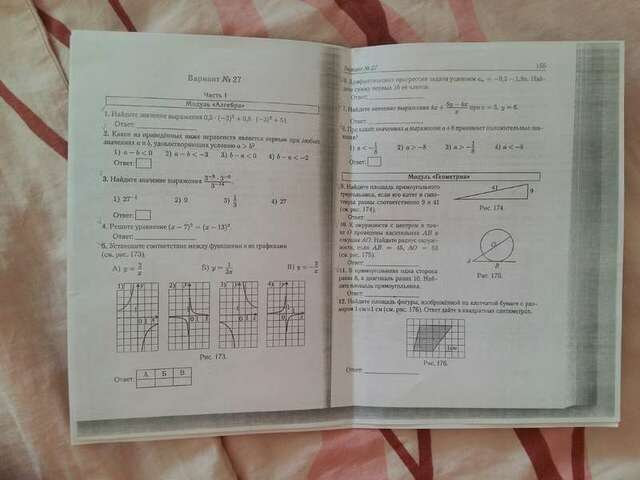 Вариант № 27
Часть 1
Модуль «Алгебра»
1. Найдите значение выражения
Ответ:
2. Какое из приведённых ниже неравенств является верным при любых
значениях a и b, удовлетворяющих условию a > b?
1) a − b < 0 2) a − b < −3 3) b − a < 0 4) b − a < −2
Ответ:
3. Найдите значение выражения
1) 27⁻¹ 2) 9 3) 1/3 4) 27
Ответ:
4. Решите уравнение (x − 7)² = (x − 13)²
Ответ:
5. Установите соответствие между функциями и их графиками
(см. рис. 173).
А) y = 2/x Б) y = 1/2x В) y = −2/x
1) 2) 3) 4)
Рис. 173.
Ответ: А Б В
Вариант № 27 155
Арифметическая прогрессия задана условием Най-
дите сумму первых 16 её членов.
Ответ:
7. Найдите значение выражения при x = 3, y = 6.
Ответ:
8. При каких значениях a выражение a + 8 принимает положительные зна-
чения?
1) a < −1/8 2) a > −8 3) a > −1/8 4) a < −8
Ответ:
Модуль «Геометрия»
9. Найдите площадь прямоугольного
треугольника, если его катет и гипо-
тенуза равны соответственно 9 и 41
(см. рис. 174).
Ответ:
41 9
Рис. 174.
10. К окружности с центром в точ-
ке O проведены касательная AB и
секущая AO. Найдите радиус окруж-
ности, если AB = 45, AO = 53
(см. рис. 175).
Ответ:
O A B
Рис. 175.
11. В прямоугольнике одна сторона
равна 8, а диагональ равна 10. Най-
дите площадь прямоугольника.
12. Найдите площадь фигуры, изображённой на клетчатой бумаге с раз-
мером 1 см×1 см (см. рис. 176). Ответ дайте в квадратных сантиметрах.
1см
Рис. 176.
Ответ: